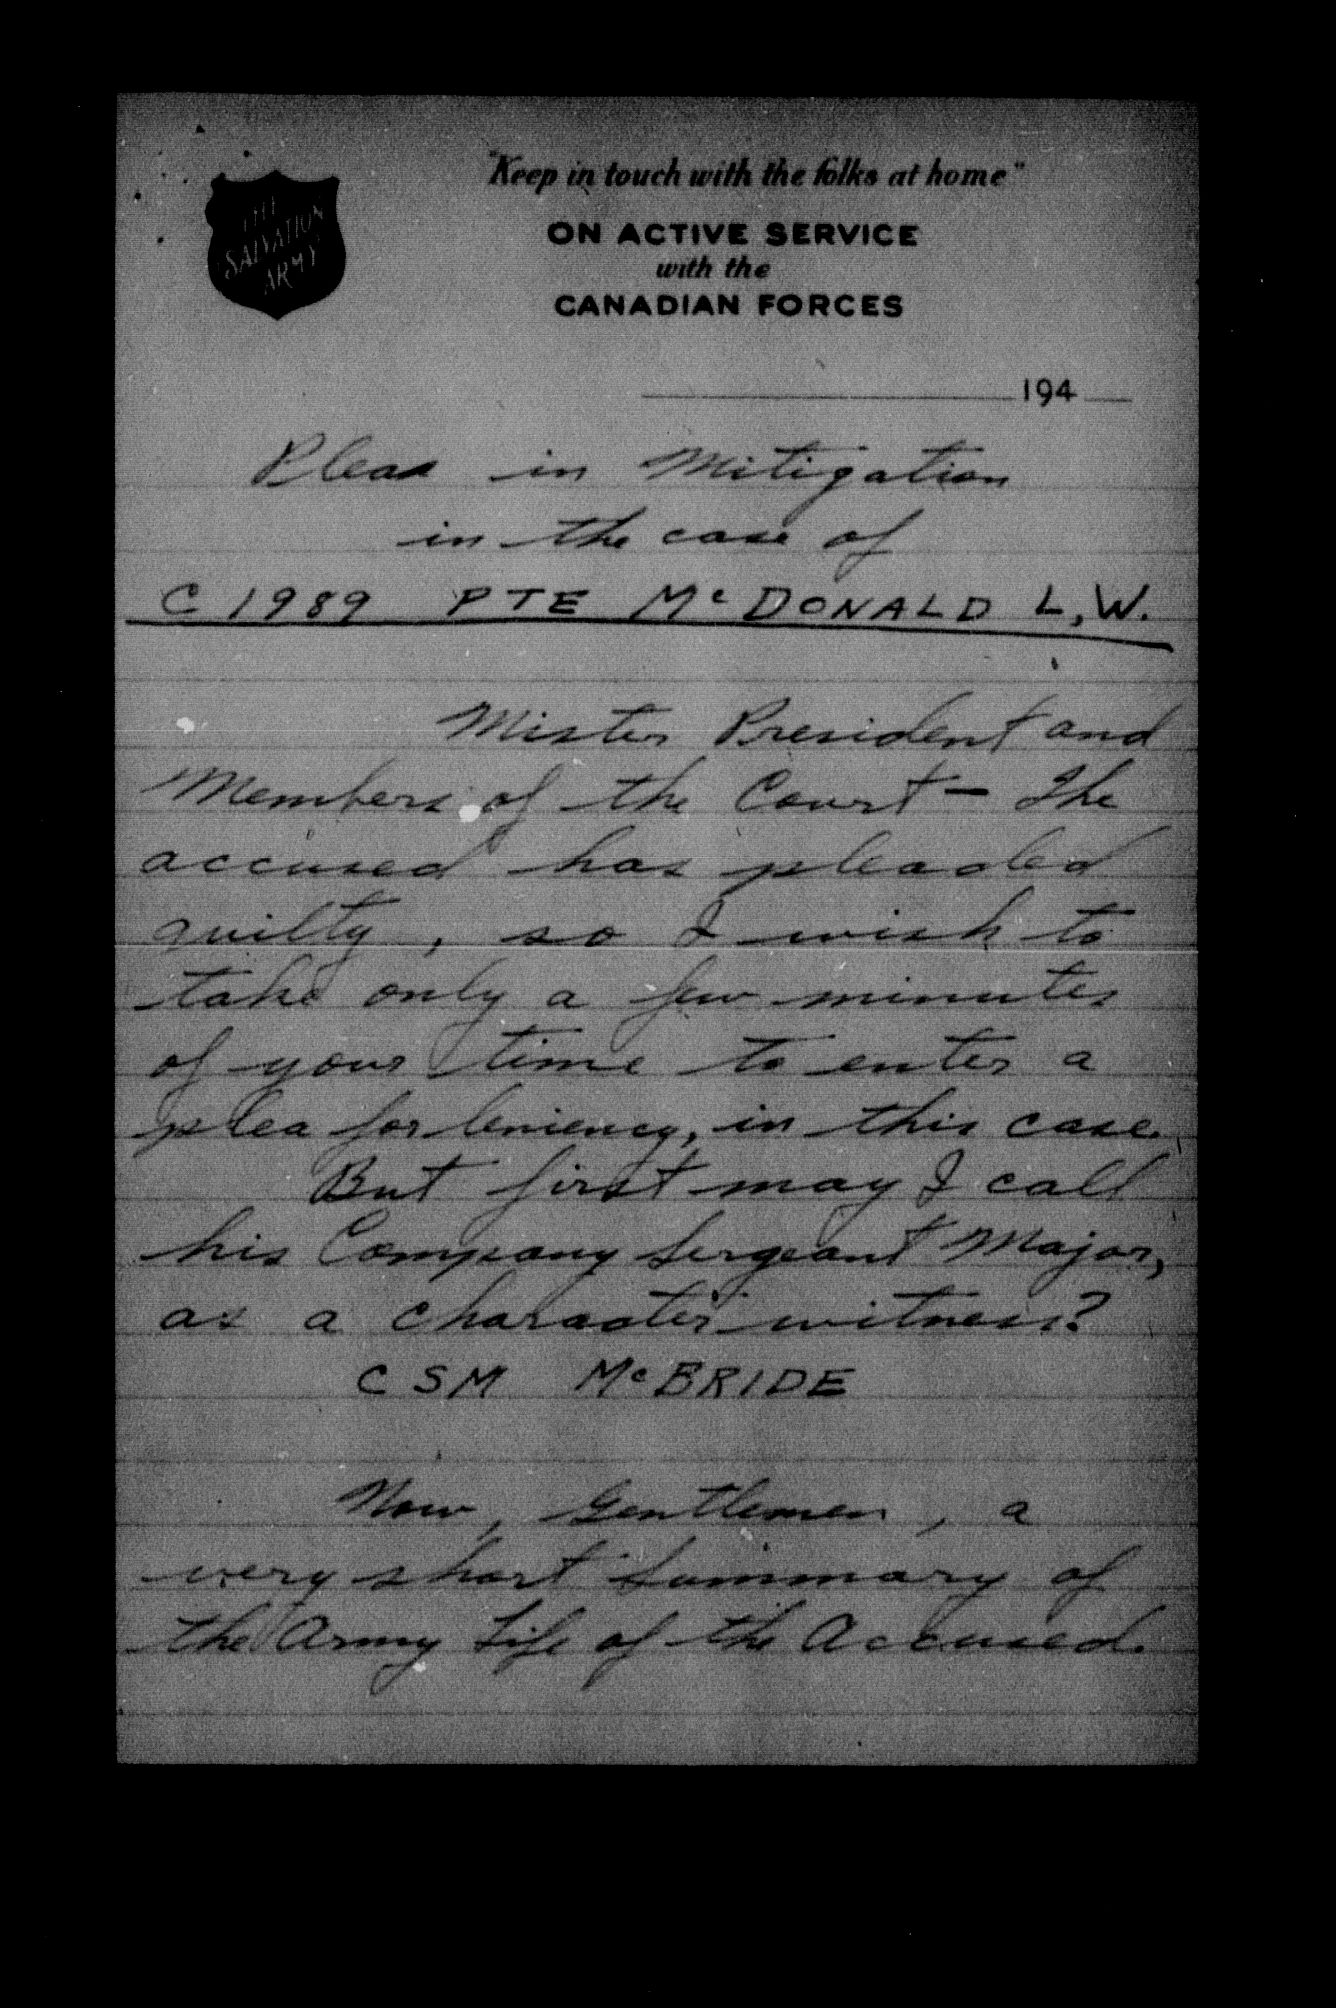 THE
SALVATION
ARMY
"Keep in touch with the folks at home"
ON ACTIVE SERVICE
with the
CANADIAN FORCES
194
Pleas in Mitigation
in the case of
C 1989 PTE McDONALD L, W.
Mister President and
Members of the Court - The
accused has pleaded
guilty, so I wish to
take only a few minutes
of your time to enter a
plea for leniency, in this case.
But first may I call
his Company Sergeant Major,
as a character witness?
CSM McBRIDE
Now, Gentlemen, a
very short Summary of
the Army Life of the Accused.